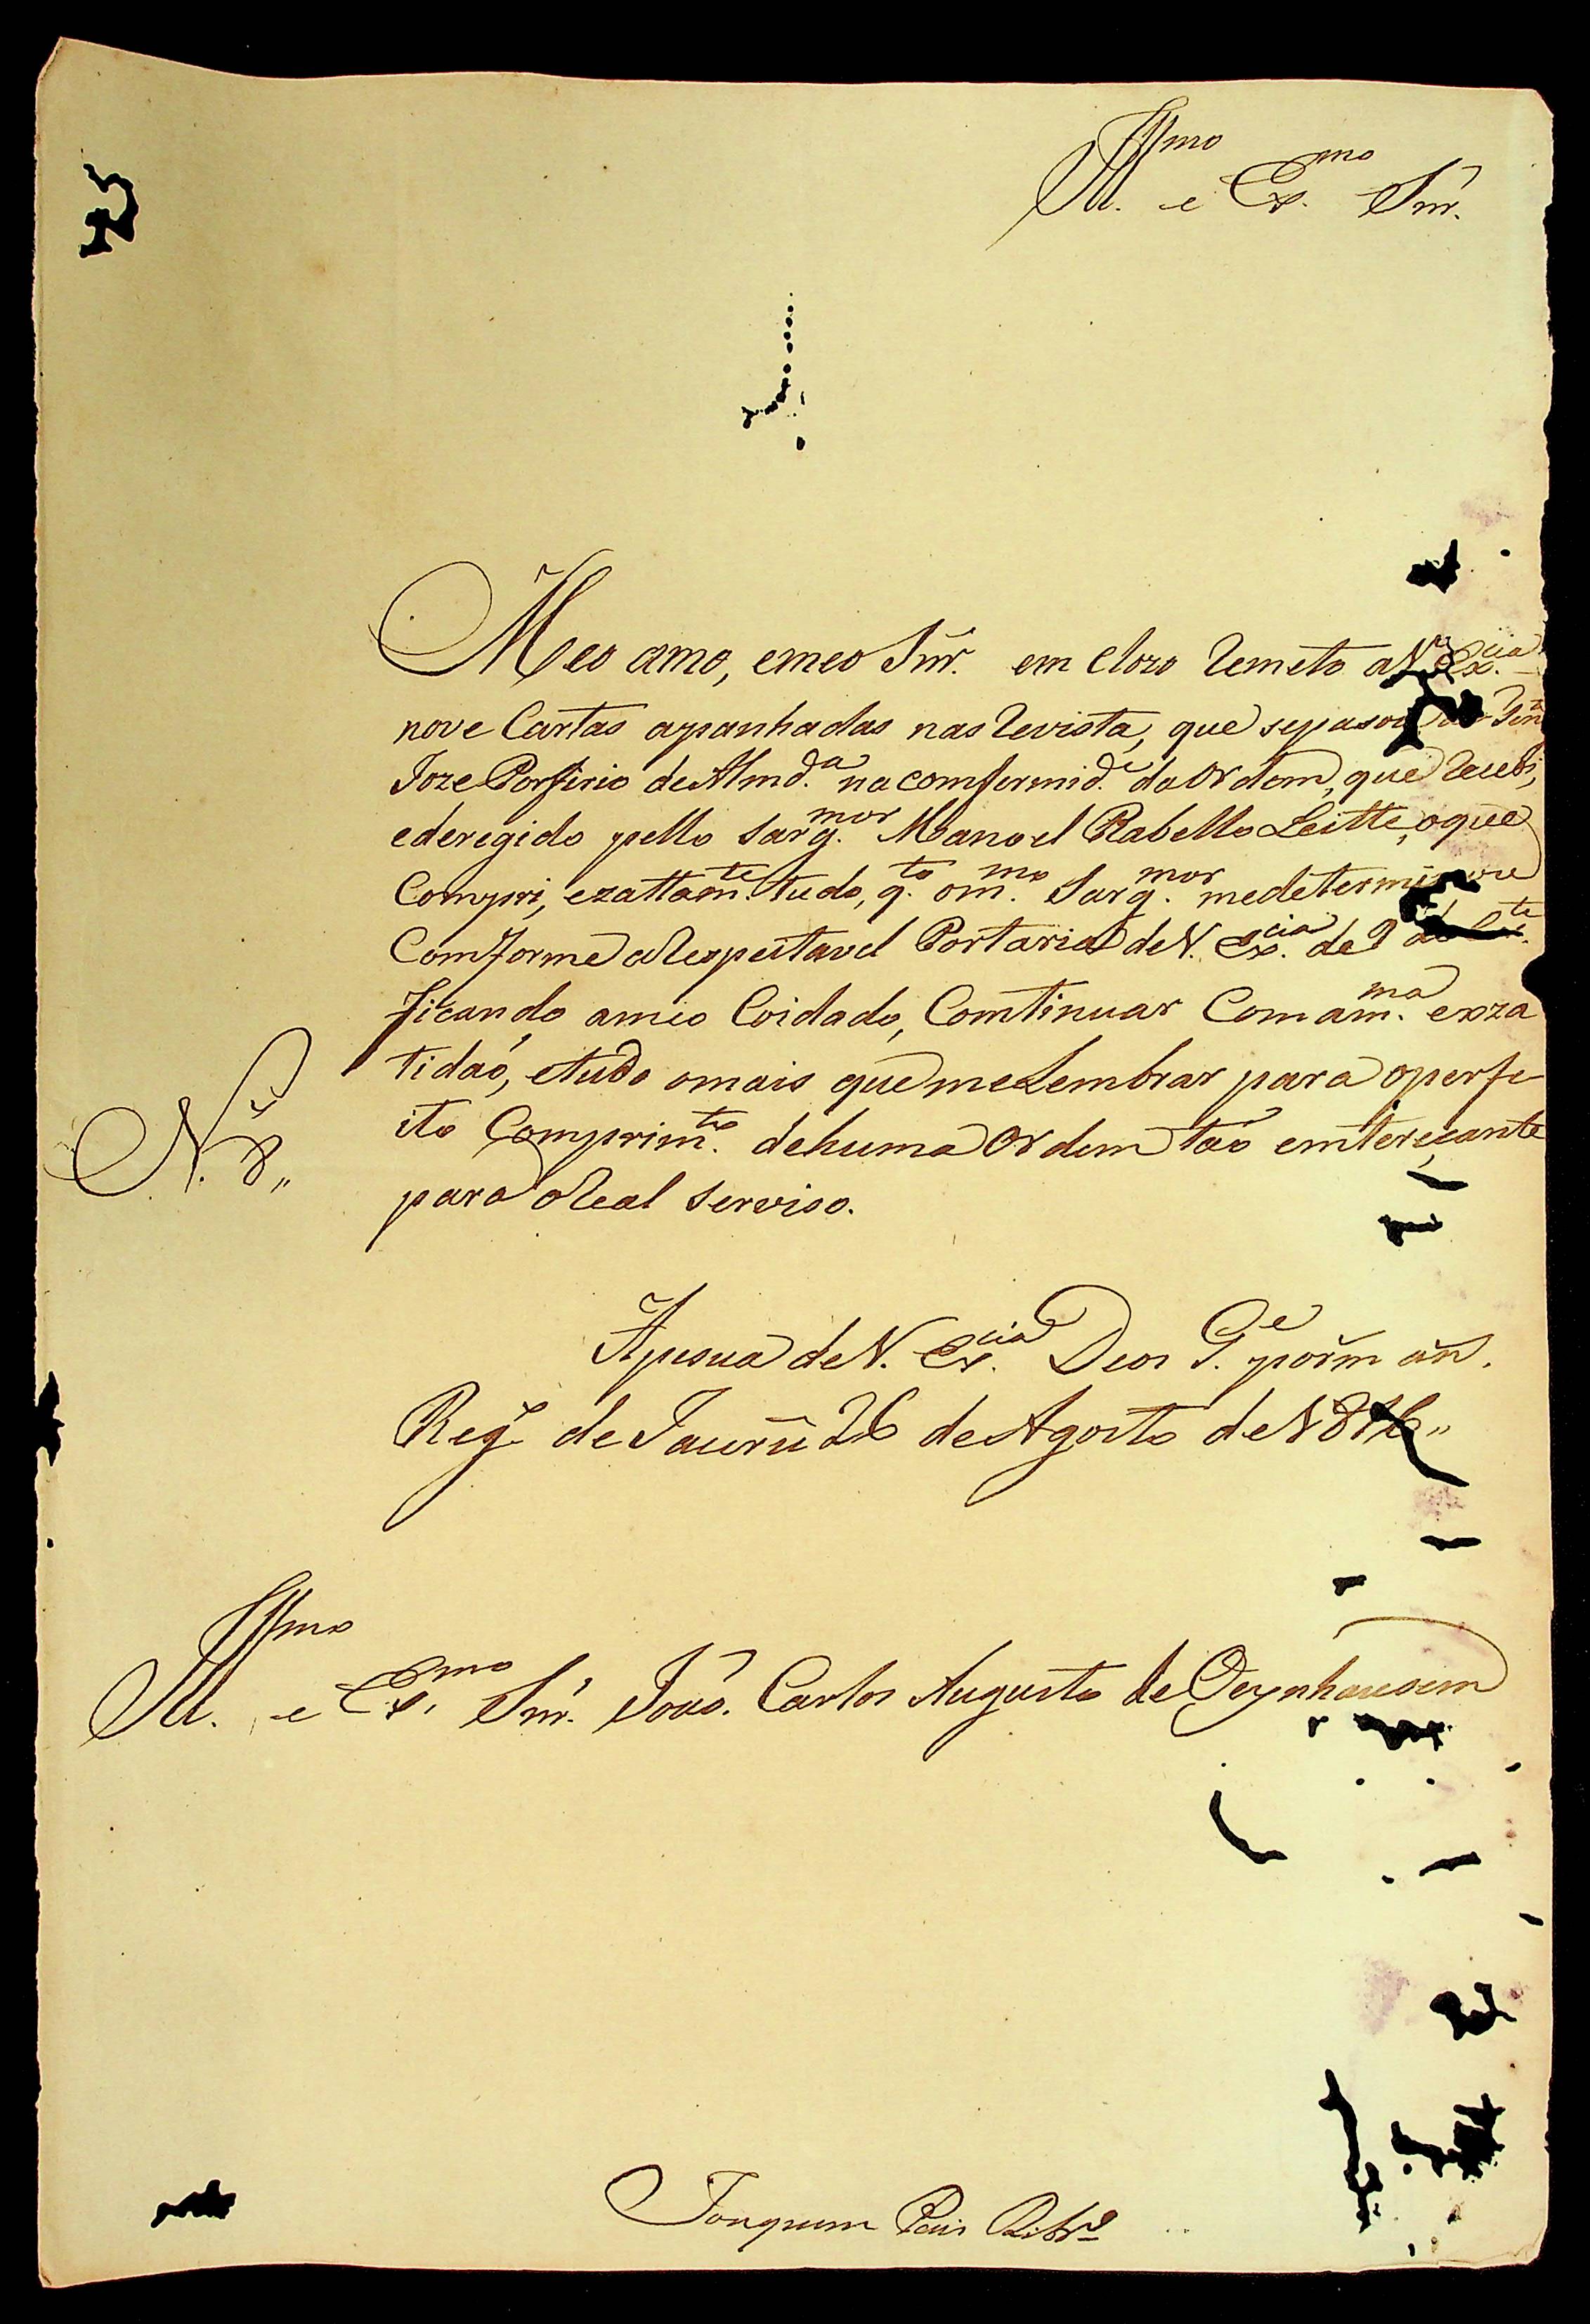 Ill.mo e Ex.mo Snr.
Meo amo, emeo Snr. em clozo Remeto aV. Ex.cia
nove Cartas apanhadas nas Revista, que sepasou Ten
Joze Porfirio de Almd.a na comformid.e da Ordem, que Recebi,
ederegido pello Sarg.mor Manoel Rabello Leitte, oque
Compri, ezattam.te tudo, q.to om.mo Sarg.mor medetermi
Comforme aRespeitavel Portaria deV. Ex.cia de 9
ficando ameo Coidado, Comtinuar Comam.ma exza
tidaó, etudo omais quemeLembrar para operfe
ito Comprim.to dehuma Ordem taó emtereçante
N. 8,,
para oReal Serviso.
Apesoa deV. Ex.cia Deos G.e porm an.
Reg. de Jaurú 26 de Agosto de 1816,,
Ill.mo e Ex.mo Snr. Joaó. Carlos Augusto de Oeynhausem
Joaquim Pais